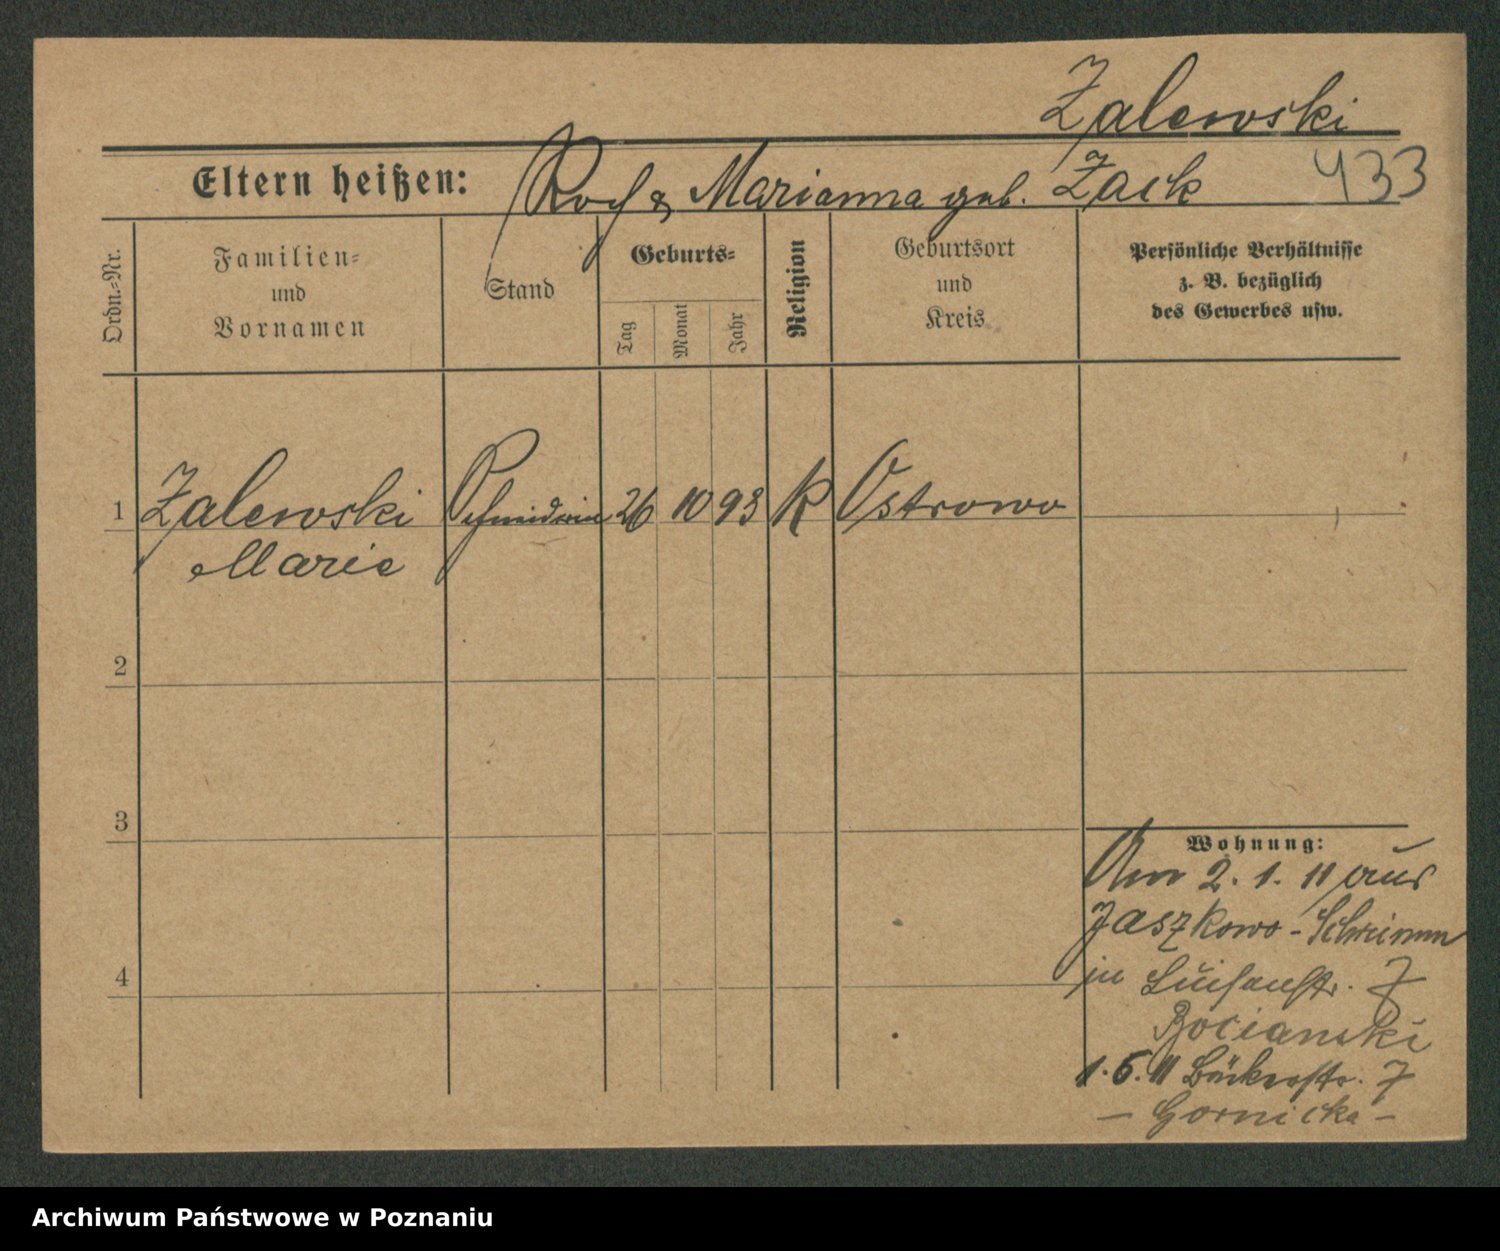 Zalewski
Eltern heißen: Roch & Marianna geb. Zack 433
Ordn.-Nr.
Familien-
und
Vornamen
Stand
Geburts-
Tag
Monat
Jahr
Religion
Geburtsort
und
Kreis
Persönliche Verhältnisse
z. B. bezüglich
des Gewerbes usw.
1 Zalewski Schneiderin 26 10 93 K Ostrowo
Marie
2
3
4
Wohnung:
Am 2. 1. 11 aus
Jaszkowo - Schrimm
in Luisenstr. 7
Bocianski
1. 6. 11 Bäckerstr. 7
- Gornicka -
Archiwum Państwowe w Poznaniu